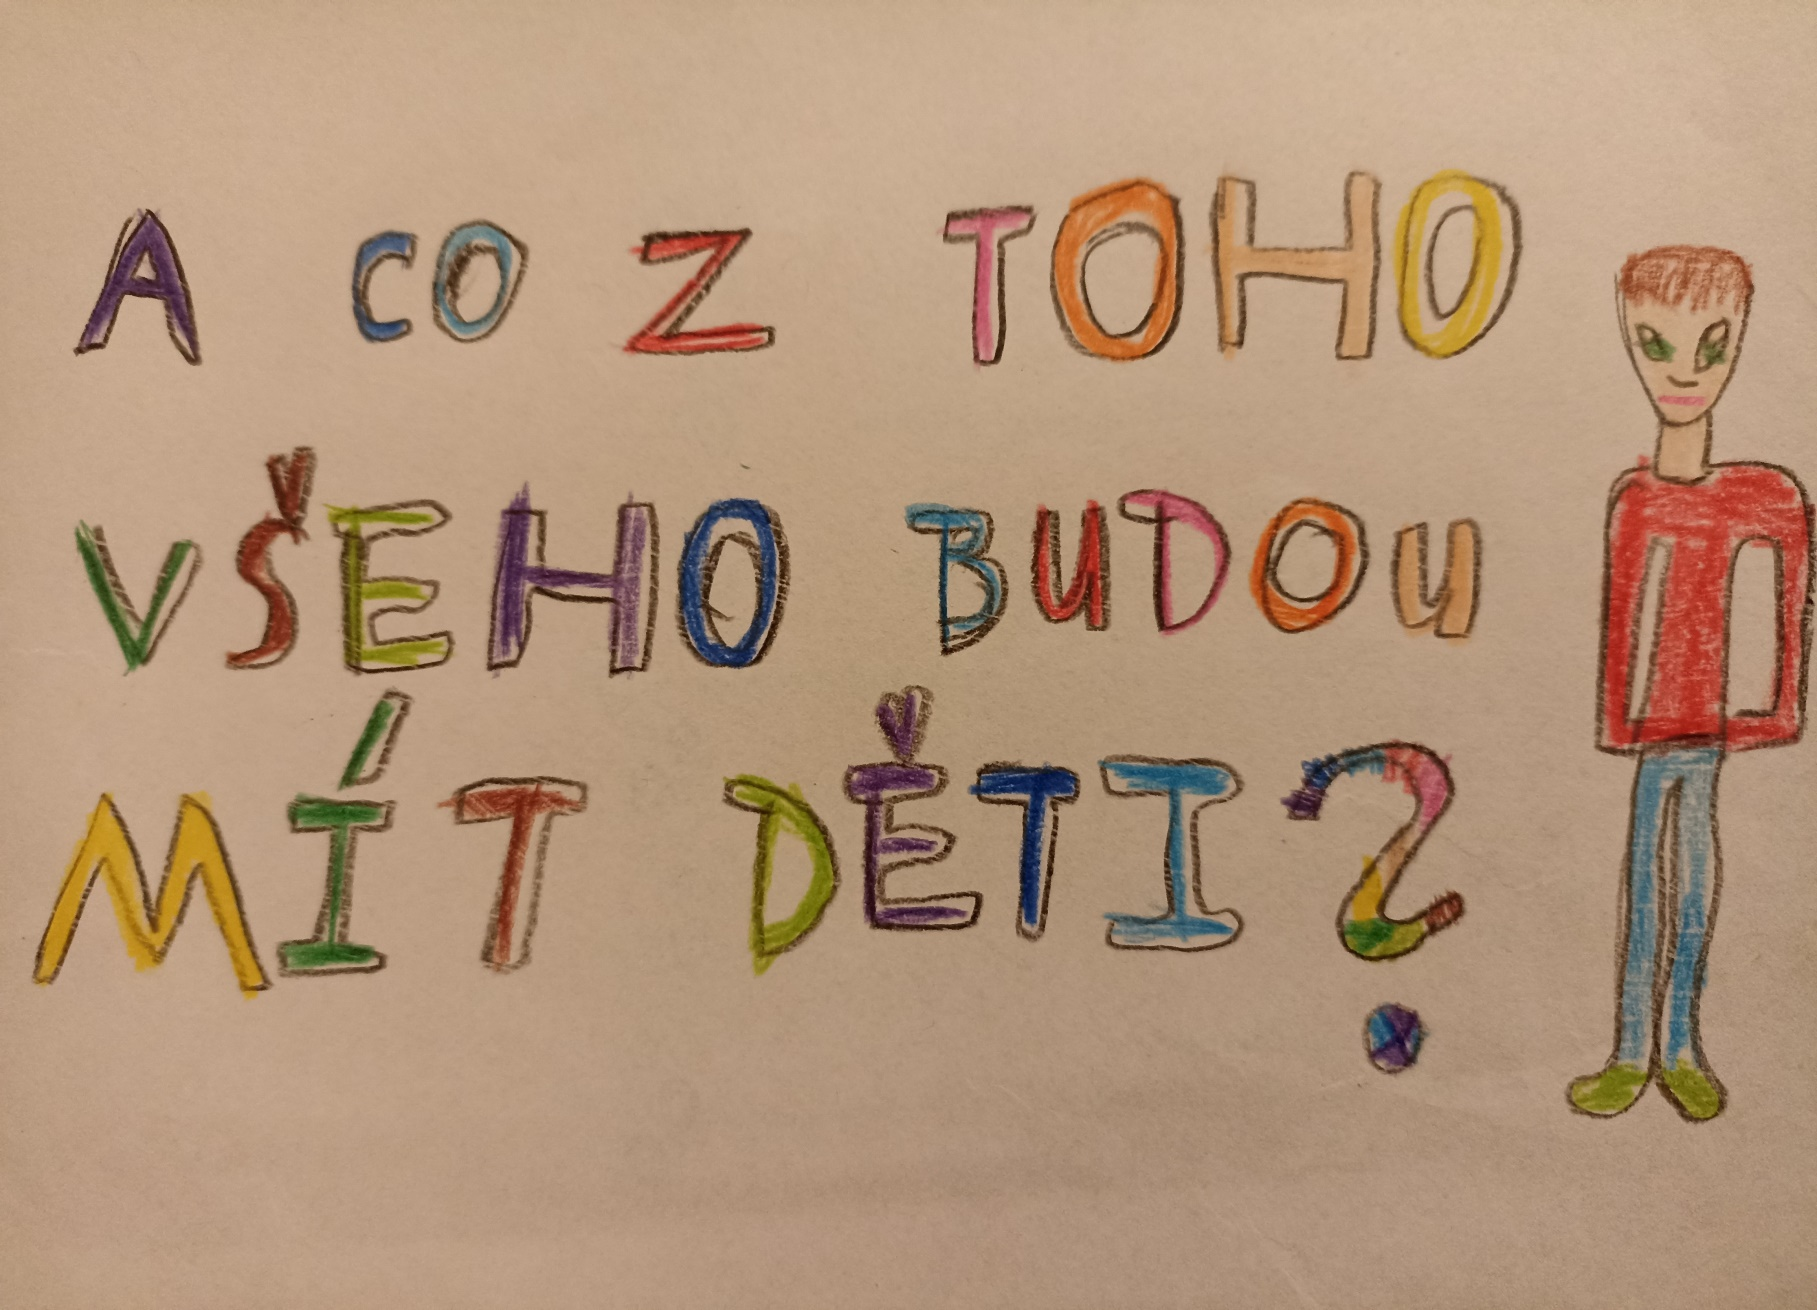 A CO Z TOHO
VŠEHO BUDOU
MÍT DĚTI?